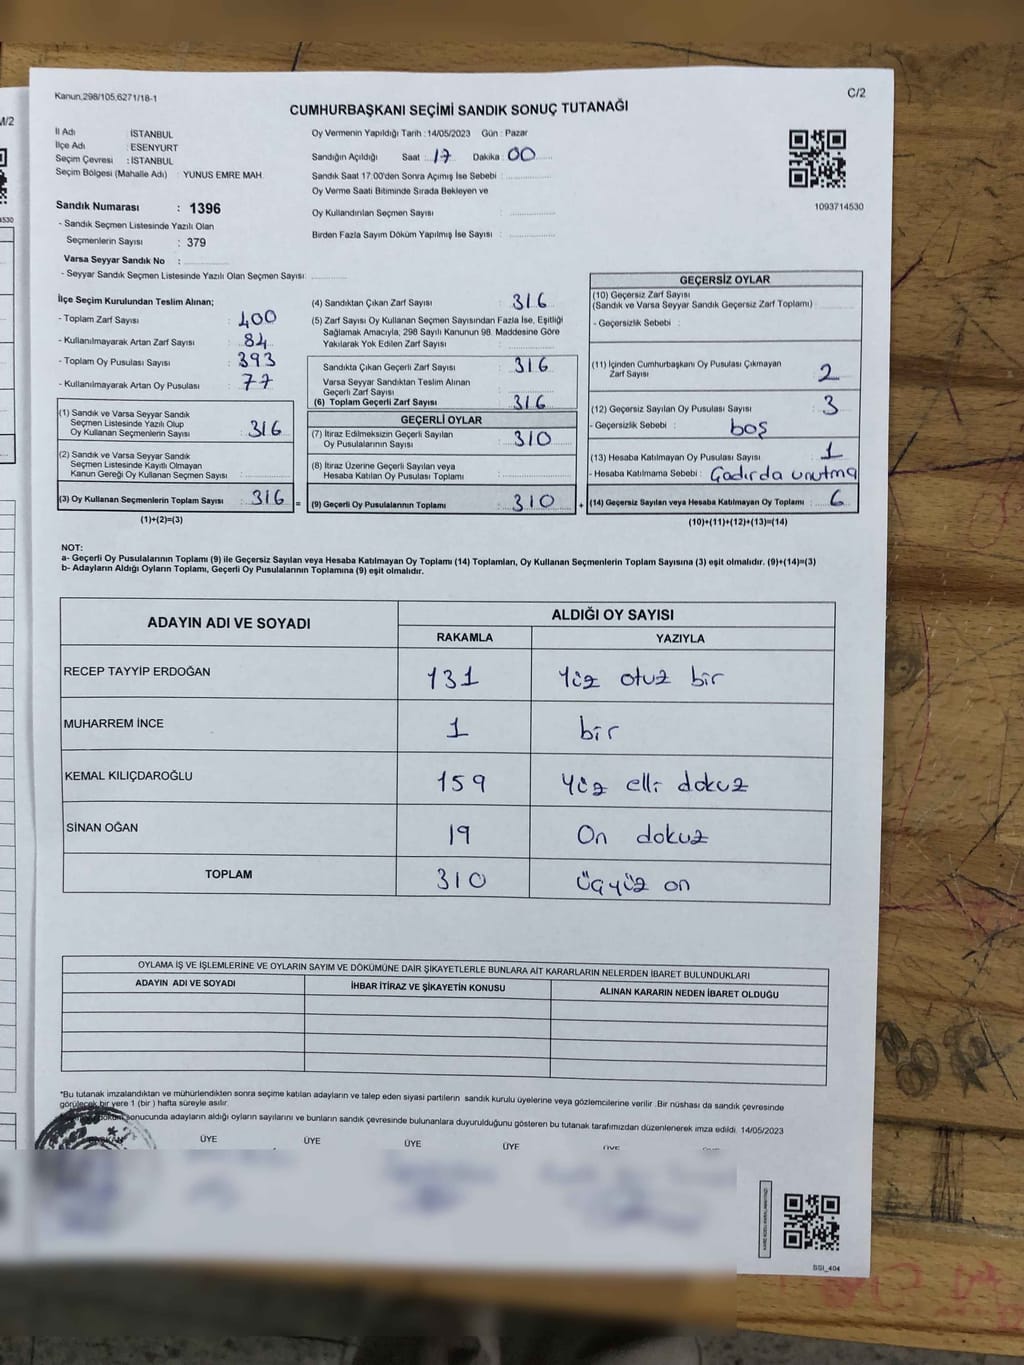 Kanun.298/105,6271/18-1
C/2
M/2
CUMHURBAŞKANI SEÇİMİ SANDIK SONUÇ TUTANAĞI
İl Adı İSTANBUL
İlçe Adı : ESENYURT
Seçim Çevresi : İSTANBUL
Seçim Bölgesi (Mahalle Adı) : YUNUS EMRE MAH.
Sandık Numarası : 1396
- Sandık Seçmen Listesinde Yazılı Olan
Seçmenlerin Sayısı : 379
Varsa Seyyar Sandık No :
- Seyyar Sandık Seçmen Listesinde Yazılı Olan Seçmen Sayısı:
Oy Vermenin Yapıldığı Tarih : 14/05/2023 Gün : Pazar
Sandığın Açıldığı Saat : 17 Dakika : 00
Sandık Saat 17:00'den Sonra Açımış İse Sebebi :
Oy Verme Saati Bitiminde Sırada Bekleyen ve
Oy Kullandırılan Seçmen Sayısı :
Birden Fazla Sayım Döküm Yapılmış İse Sayısı :
1093714530
4530
İlçe Seçim Kurulundan Teslim Alınan;
- Toplam Zarf Sayısı : 400
- Kullanılmayarak Artan Zarf Sayısı : 84
- Toplam Oy Pusulası Sayısı : 393
- Kullanılmayarak Artan Oy Pusulası : 77
(1) Sandık ve Varsa Seyyar Sandık
Seçmen Listesinde Yazılı Olup
Oy Kullanan Seçmenlerin Sayısı : 316
(2) Sandık ve Varsa Seyyar Sandık
Seçmen Listesinde Kayıtlı Olmayan
Kanun Gereği Oy Kullanan Seçmen Sayısı :
(3) Oy Kullanan Seçmenlerin Toplam Sayısı : 316 =
(1)+(2)=(3)
(4) Sandıktan Çıkan Zarf Sayısı : 316
(5) Zarf Sayısı Oy Kullanan Seçmen Sayısından Fazla İse, Eşitliği
Sağlamak Amacıyla; 298 Sayılı Kanunun 98. Maddesine Göre
Yakılarak Yok Edilen Zarf Sayısı :
Sandıkta Çıkan Geçerli Zarf Sayısı : 316
Varsa Seyyar Sandıktan Teslim Alınan
Geçerli Zarf Sayısı :
(6) Toplam Geçerli Zarf Sayısı : 316
GEÇERLİ OYLAR
(7) İtiraz Edilmeksizin Geçerli Sayılan
Oy Pusulalarının Sayısı : 310
(8) İtiraz Üzerine Geçerli Sayılan veya
Hesaba Katılan Oy Pusulası Toplamı :
(9) Geçerli Oy Pusulalarının Toplamı : 310 +
GEÇERSİZ OYLAR
(10) Geçersiz Zarf Sayısı
(Sandık ve Varsa Seyyar Sandık Geçersiz Zarf Toplamı) :
- Geçersizlik Sebebi :
(11) İçinden Cumhurbaşkanı Oy Pusulası Çıkmayan
Zarf Sayısı : 2
(12) Geçersiz Sayılan Oy Pusulası Sayısı : 3
- Geçersizlik Sebebi : boş
(13) Hesaba Katılmayan Oy Pusulası Sayısı : 1
- Hesaba Katılmama Sebebi : Çadırda unutma
(14) Geçersiz Sayılan veya Hesaba Katılmayan Oy Toplamı : 6
(10)+(11)+(12)+(13)=(14)
NOT:
a- Geçerli Oy Pusulalarının Toplamı (9) ile Geçersiz Sayılan veya Hesaba Katılmayan Oy Toplamı (14) Toplamları, Oy Kullanan Seçmenlerin Toplam Sayısına (3) eşit olmalıdır. (9)+(14)=(3)
b- Adayların Aldığı Oyların Toplamı, Geçerli Oy Pusulalarının Toplamına (9) eşit olmalıdır.
ADAYIN ADI VE SOYADI ALDIĞI OY SAYISI
RAKAMLA YAZIYLA
RECEP TAYYİP ERDOĞAN 131 Yüz otuz bir
MUHARREM İNCE 1 bir
KEMAL KILIÇDAROĞLU 159 Yüz elli dokuz
SİNAN OĞAN 19 On dokuz
TOPLAM 310 üçyüz on
OYLAMA İŞ VE İŞLEMLERİNE VE OYLARIN SAYIM VE DÖKÜMÜNE DAİR ŞİKAYETLERLE BUNLARA AİT KARARLARIN NELERDEN İBARET BULUNDUKLARI
ADAYIN ADI VE SOYADI İHBAR İTİRAZ VE ŞİKAYETİN KONUSU ALINAN KARARIN NEDEN İBARET OLDUĞU
*Bu tutanak imzalandıktan ve mühürlendikten sonra seçime katılan adayların ve talep eden siyasi partilerin sandık kurulu üyelerine veya gözlemcilerine verilir. Bir nüshası da sandık çevresinde
görülecek bir yere 1 (bir) hafta süreyle asılır.
sonucunda adayların aldığı oyların sayılarını ve bunların sandık çevresinde bulunanlara duyurulduğunu gösteren bu tutanak tarafımızdan düzenlenerek imza edildi. 14/05/2023
ÜYE ÜYE ÜYE ÜYE
SSI_404